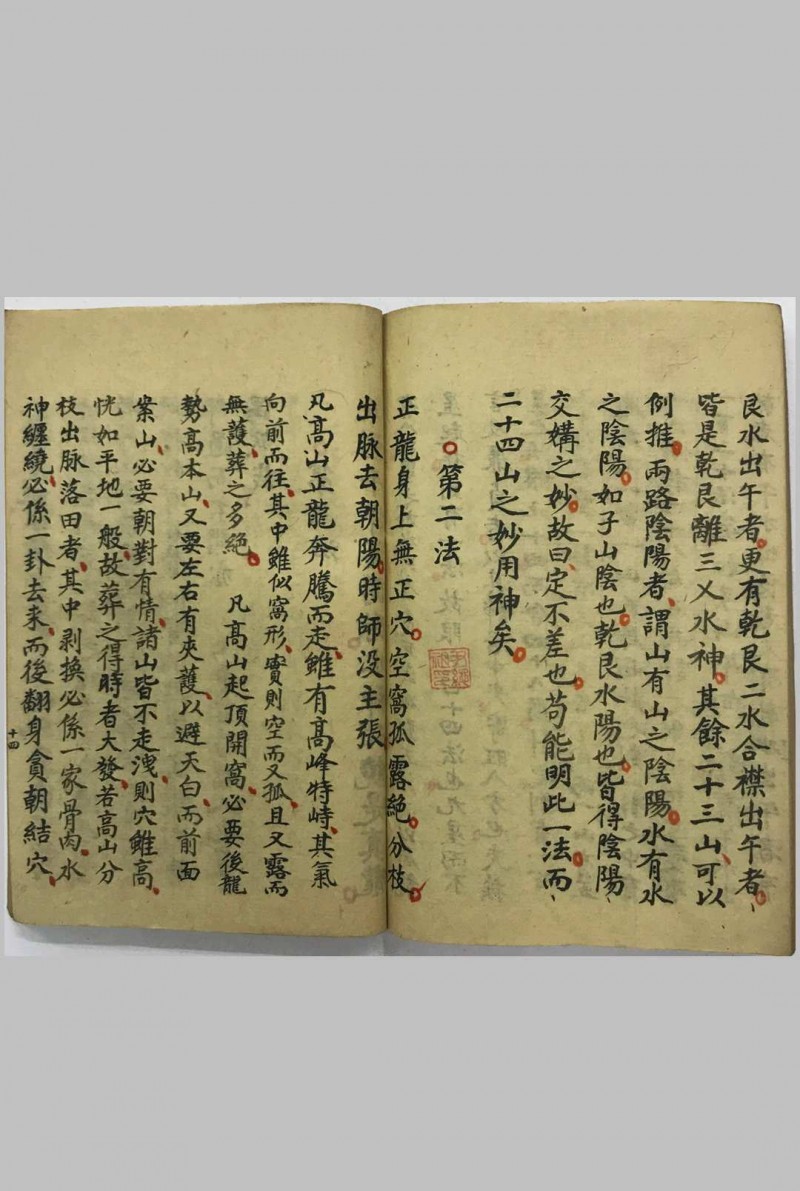 艮水出午者。更有乾艮二水合襟出午者。
皆是乾艮離三乂水神。其餘二十三山、可以
例推。兩路陰陽者、謂山有山之陰陽。水有水
之陰陽。如子山陰也。乾艮水陽也。皆得陰陽
交媾之妙。故曰、定不差也。苟能明此一法。而
二十四山之妙用神矣。
○第二法
正龍身上無正穴。空窩孤露絕。分枝
出脉去朝陽。時師没主張、
凡高山正龍奔騰而走、雖有高峰特峙、其氣
向前而往、其中雖似窩形、實則空而又孤、且又露而
無護、葬之多絕。　凡高山起頂開窩、必要後龍
勢高本山、又要左右有夾護、以避天白、而前面
案山、必要朝對有情、諸山皆不走洩、則穴雖高、
恍如平地一般、故葬之得時者大發、若高山分
枝出脉落田者、其中剥換必係一家骨肉、水
神纏繞、必係一卦去来、而後翻身貪朝結穴、
十四